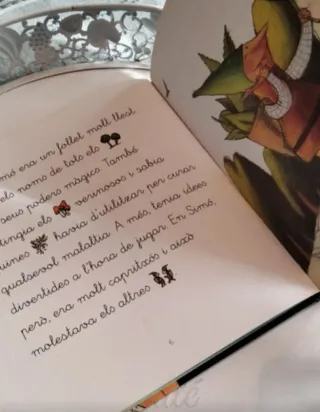 era un follet molt llest
els noms de tots els
seus poders màgics. També
els verinosos i sabia
havia d'utilitzar per curar
qualsevol malaltia. A més, tenia idees
divertides a l'hora de jugar. En Simó,
però, era molt capritxós i això
molestava els altres
6